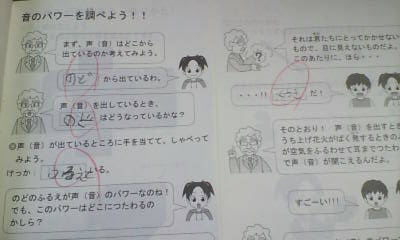 音のパワーを調べよう！！
まず、声（音）はどこから
出ているのか考えてみよう。
のど から出ているわ。
声（音）を出しているとき、
のど はどうなっているかな？
◎声（音）が出ているところに手を当てて、しゃべって
みよう。
けっか：ふるえている。
のどのふるえが声（音）のパワーなのね！
でも、このパワーはどこにつたわるの
かしら？
それは君たちにとってかかせない
もので、目に見えないものだよ。
このあたりに、ほら・・・
・・・!! くうき だ！
そのとおり！ 声（音）を出すとき
うち上げ花火がばく発するときの
が空気をふるわせて耳までつたわ
で声（音）が聞こえるんだよ。
すごーい!!!